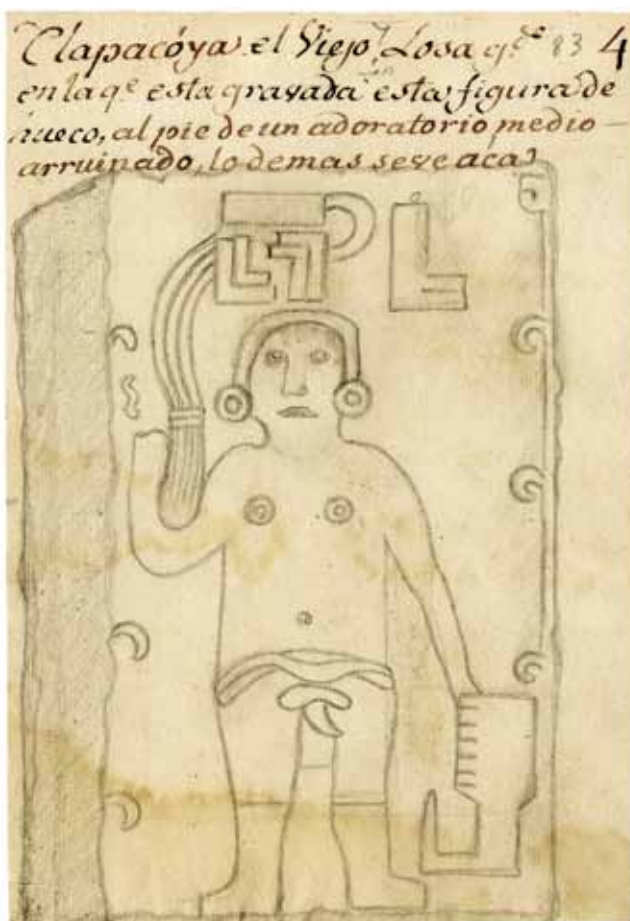 Tlapacóya el Viejo, Losa q.e 83 4
en la q.e esta gravada esta figura de
hueco, al pie de un adoratorio medio
arruinado, lo demas se ve aca